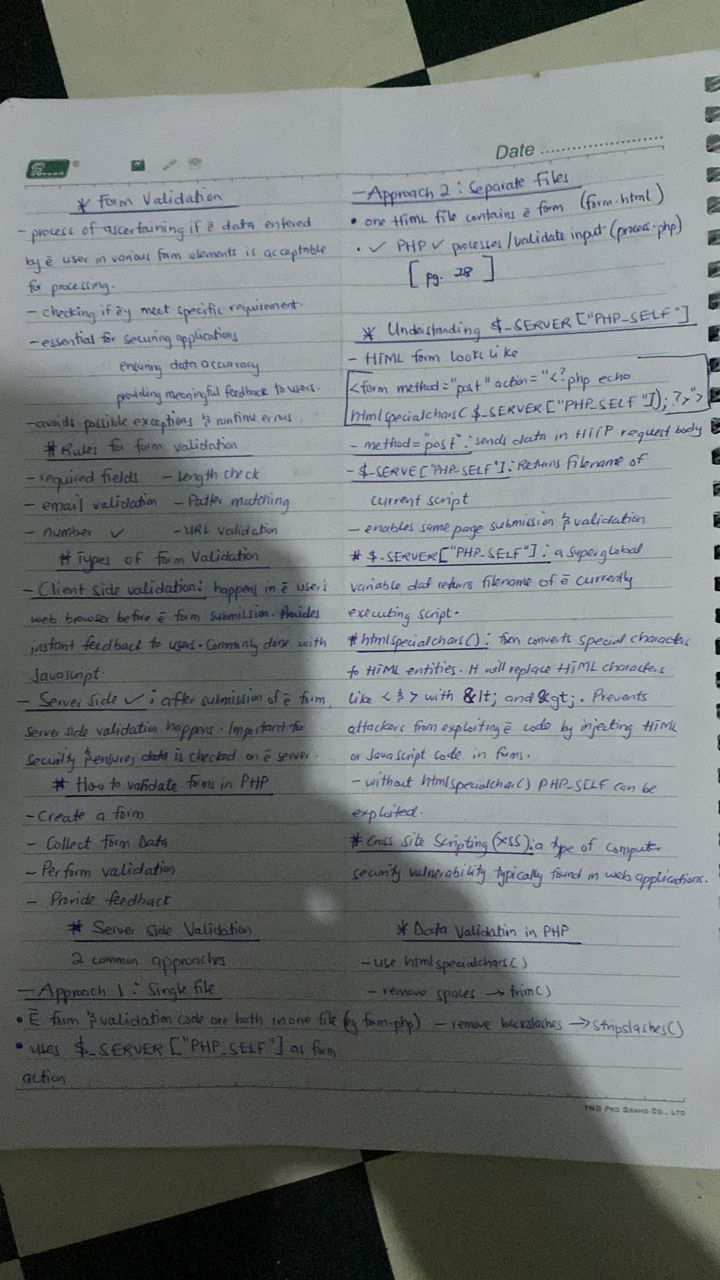 Date
* Form Validation
- process of ascertaining if ē data entered
by ē user in various form elements is acceptable
for processing.
- checking if ēy meet specific requirement.
- essential for securing applications
ensuring data accuracy
providing meaningful feedback to users.
- avoids possible exceptions & runtime errors.
# Rules for form validation
- required fields - length check
- email validation - Patter matching
- number ✓ - URL validation
# Types of Form Validation
- Client side validation: happens in ē user's
web browser before ē form submission. Provides
instant feedback to users. Commonly done with
Javascript.
- Server side ✓ : after submission of ē form,
server side validation happens. Important for
security & ensures data is checked on ē server.
# How to validate forms in PHP
- Create a form
- Collect Form Data
- Perform validation
- Provide feedback
# Server Side Validation
2 common approaches
- Approach 1: Single file
• Ē form & validation code are both in one file (eg form.php)
• uses $_SERVER ["PHP_SELF"] as form
action
- Approach 2: Separate Files
• one HTML file contains ē form (form.html)
• ✓ PHP ✓ processes/validate input (process.php)
[pg. 28]
* Understanding $_SERVER ["PHP_SELF"]
- HTML form looks like
<form method="post" action="<?php echo
htmlspecialchars($_SERVER ["PHP_SELF"]); ?>">
- method="post": sends data in HTTP request body
- $_SERVE ["PHP_SELF"]: Returns filename of
current script
- enables same page submission & validation
# $_SERVER["PHP_SELF"]: a superglobal
variable dat returns filename of ē currently
executing script.
# htmlspecialchars(): converts special characters
to HTML entities. It will replace HTML characters
like < & > with &lt; and &gt;. Prevents
attackers from exploiting ē code by injecting HTML
or Javascript code in forms.
- without htmlspecialchar() PHP_SELF can be
exploited.
# Cross Site Scripting (XSS): a type of computer
security vulnerability typically found in web applications.
* Data Validation in PHP
- use htmlspecialchars()
- remove spaces → trim()
- remove backslashes → stripslashes()
TMG PKD BRAND CO., LTD